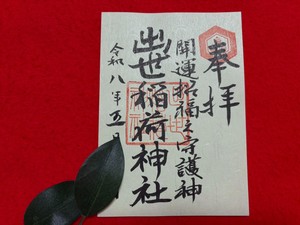 奉拝
開運招福之守護神
出世稲荷神社
令和八年五月